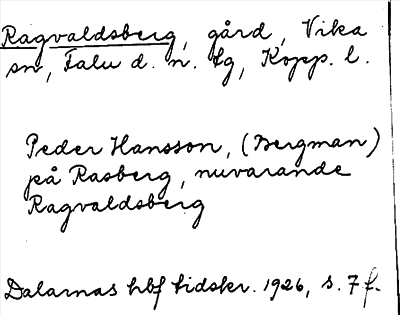 Ragvaldsberg, gård, Vika
sn, Falu d. n. lg, Kopp. l.
Peder Hansson, (Bergman)
på Rasberg, nuvarande
Ragvaldsberg
Dalarnas hbf tidskr. 1926, s. 7 f.